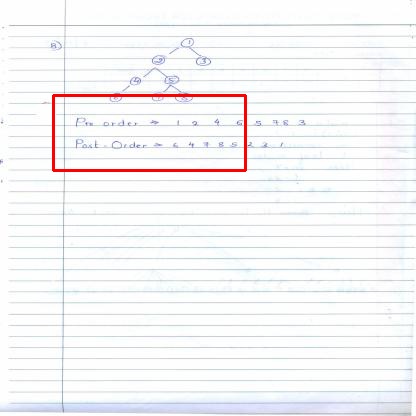 B)
1
2 3
4 5
6 7 8
Pre order ⇒ 1 2 4 6 5 7 8 3
Post-Order ⇒ 6 4 7 8 5 2 3 1